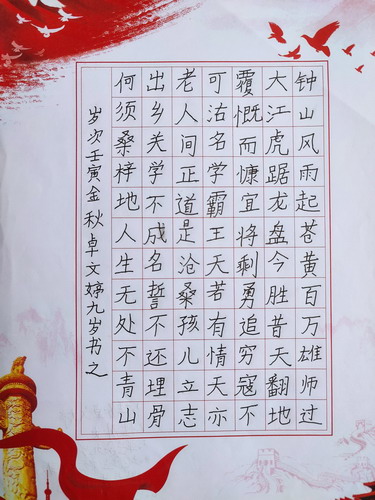 钟山风雨起苍黄百万雄师过
大江虎踞龙盘今胜昔天翻地
覆慨而慷宜将剩勇追穷寇不
可沽名学霸王天若有情天亦
老人间正道是沧桑孩儿立志
出乡关学不成名誓不还埋骨
何须桑梓地人生无处不青山
岁次壬寅金秋卓文婷九岁书之